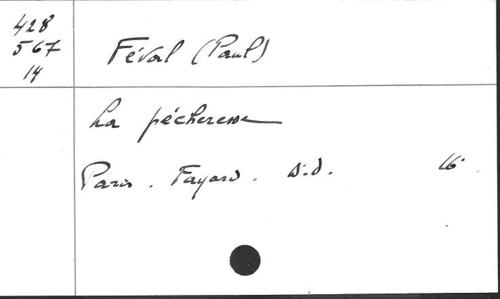 428
567
14
Féval (Paul)
La pécheresse
Paris. Fayard. s.d. 16°